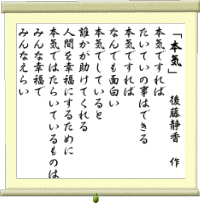 「本気」
後藤静香 作
本気ですれば
たいていの事はできる
本気ですれば
なんでも面白い
本気でしていると
誰かが助けてくれる
人間を幸福にするために
本気ではたらいているものは
みんな幸福で
みんなえらい